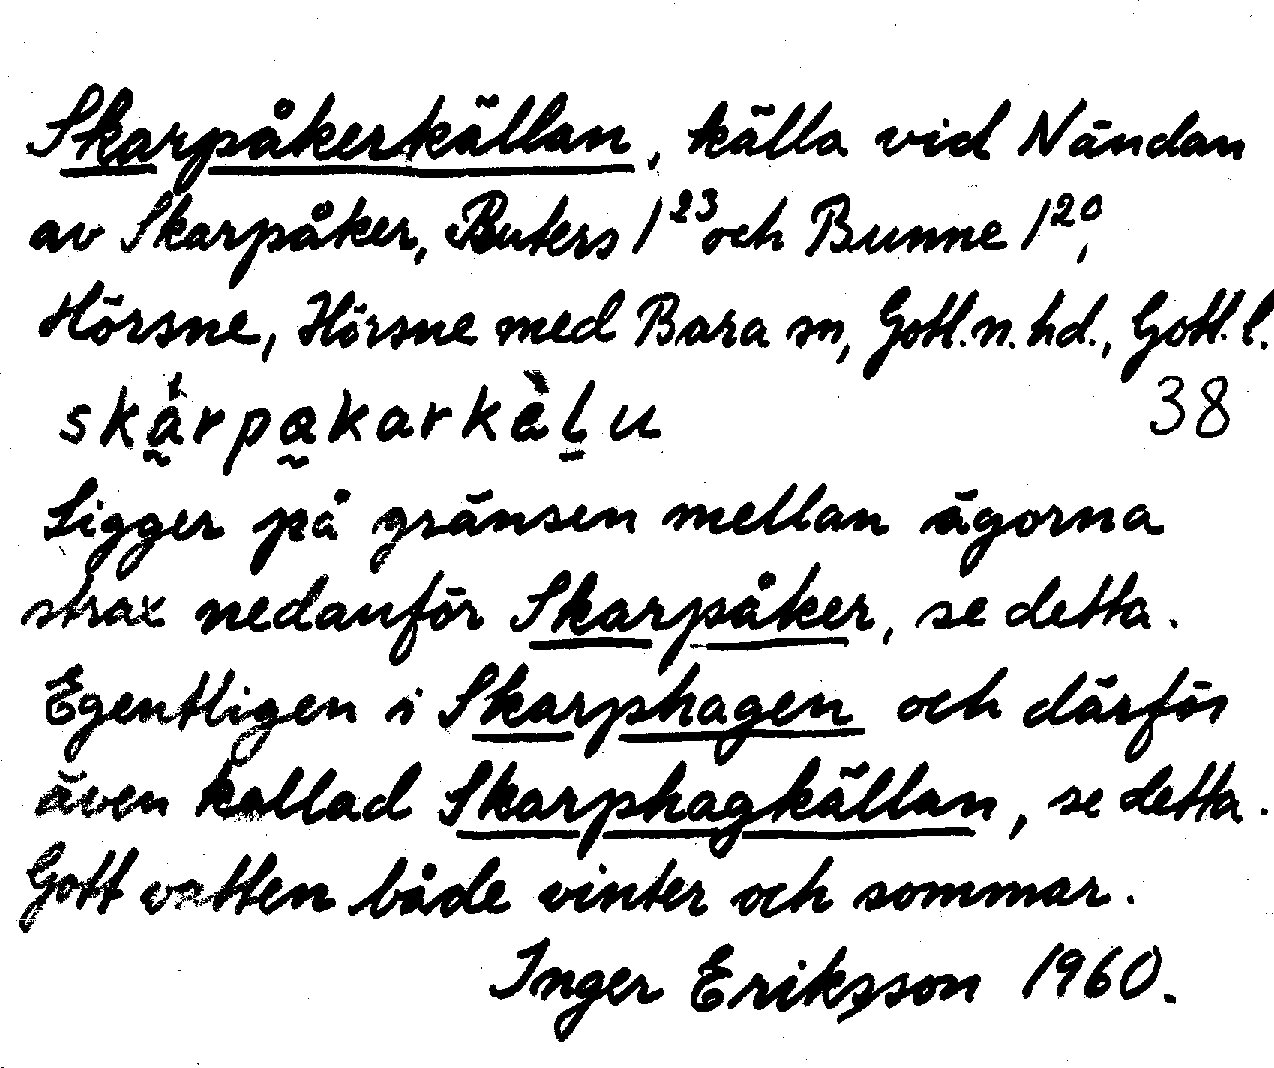 Skarpåkerkällan, källa vid Nändan
av Skarpåker, Buters 1²³ och Bunne 1²⁰,
Hörsne, Hörsne med Bara sn, Gotl. n. hd., Gotl. l.
38
Ligger på gränsen mellan ägorna
strax nedanför Skarpåker, se detta.
Egentligen i Skarphagen och därför
även kallad Skarphagkällan, se detta.
Gott vatten både vinter och sommar.
Inger Eriksson 1960.